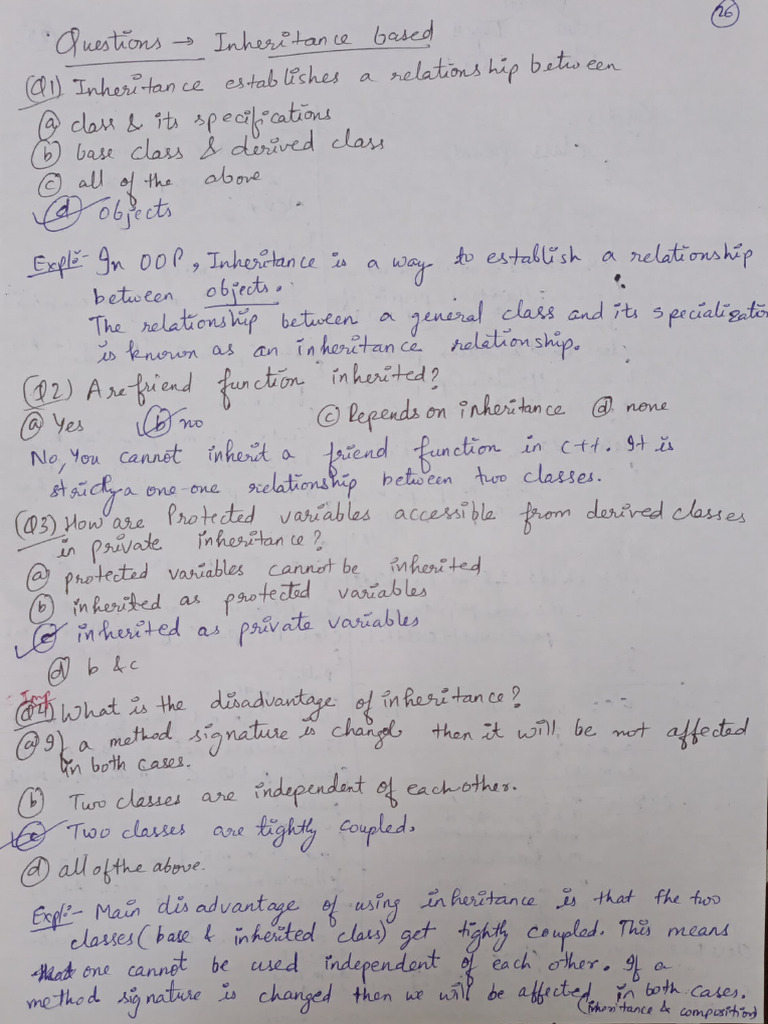 26
Questions → Inheritance based
(Q1) Inheritance establishes a relationship between
(a) class & its specifications
(b) base class & derived class
(c) all of the above
(d) objects
Expl:- In OOP, Inheritance is a way to establish a relationship
between objects.
The relationship between a general class and its specialization
is known as an inheritance relationship.
(Q2) Are friend function inherited?
(a) Yes (b) no (c) Depends on inheritance (d) none
No, You cannot inherit a friend function in C++. It is
strictly a one-one relationship between two classes.
(Q3) How are Protected variables accessible from derived classes
in private inheritance?
(a) protected variables cannot be inherited
(b) inherited as protected variables
(c) inherited as private variables
(d) b & c
Imp
(Q4) What is the disadvantage of inheritance?
(a) If a method signature is changed then it will be not affected
in both cases.
(b) Two classes are independent of each other.
(c) Two classes are tightly coupled.
(d) all of the above.
Expl:- Main disadvantage of using inheritance is that the two
classes (base & inherited class) get tightly coupled. This means
that one cannot be used independent of each other. If a
method signature is changed then we will be affected in both cases.
(inheritance & composition)